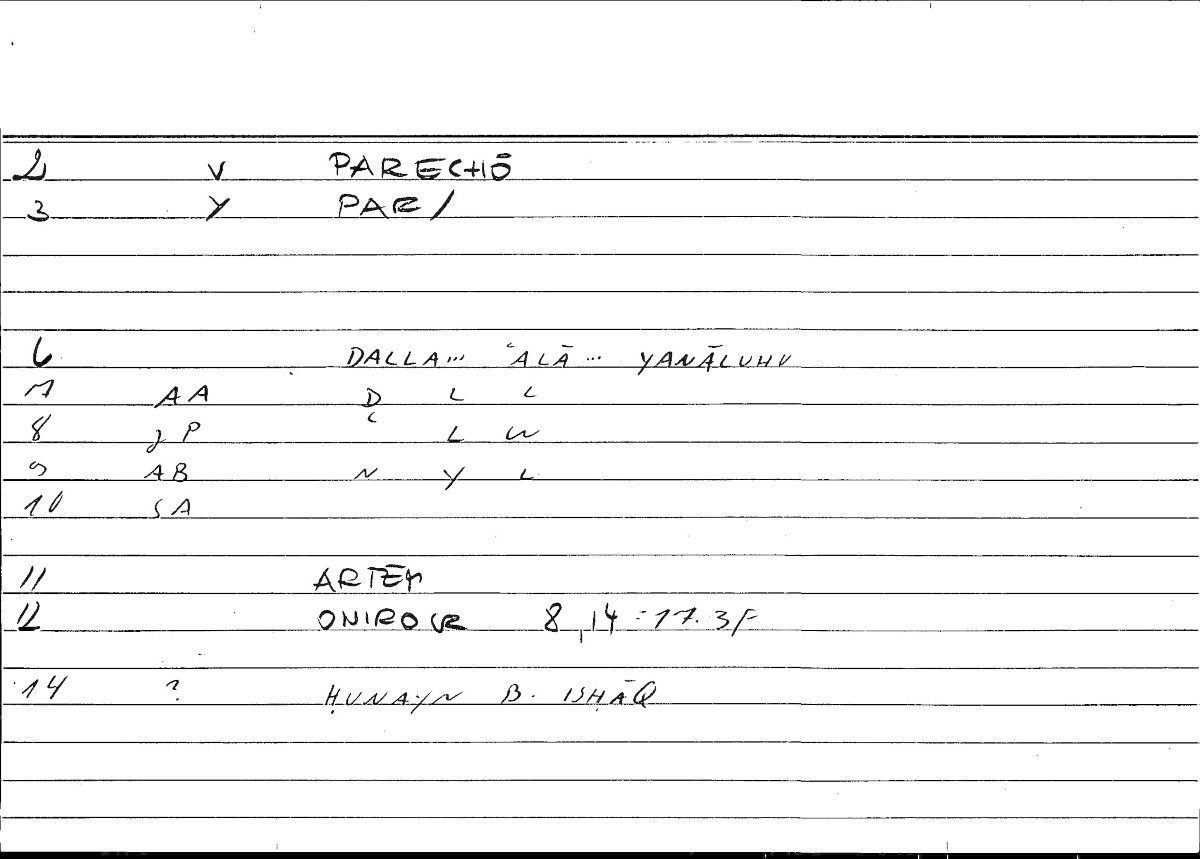 2 V PARECHŌ
3 Y PAR/
6 DALLA... ʿALĀ... YANĀLUHU
7 AA D L L
8 P ʿ L W
9 AB N Y L
10 SA
11 ARTĒM
12 ONIROCR 8,14 = 17.3F
14 ? ḤUNAYN B. ISḤĀQ